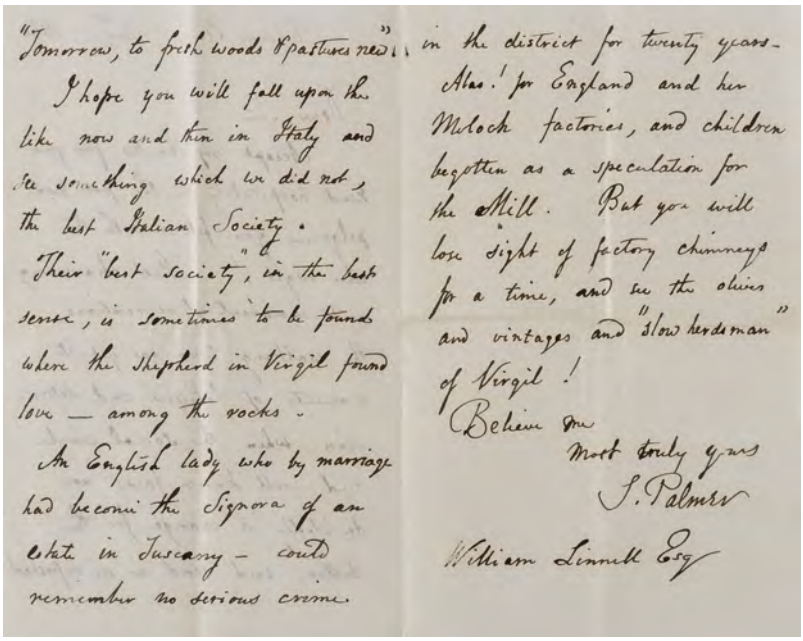 "Tomorrow, to fresh woods & pastures new".
I hope you will fall upon the
like now and then in Italy and
see something which we did not,
the best Italian Society.
Their "best society", in the best
sense, is sometimes to be found
where the shepherd in Virgil found
love — among the rocks.
An English lady who by marriage
had become the Signora of an
estate in Tuscany — could
remember no serious crime
in the district for twenty years—
Alas! for England and her
Moloch factories, and children
begotten as a speculation for
the Mill. But you will
lose sight of factory chimneys
for a time, and see the olives
and vintages and "slow herdsman"
of Virgil!
Believe me
most truly yours
S. Palmer
William Linnell Esq